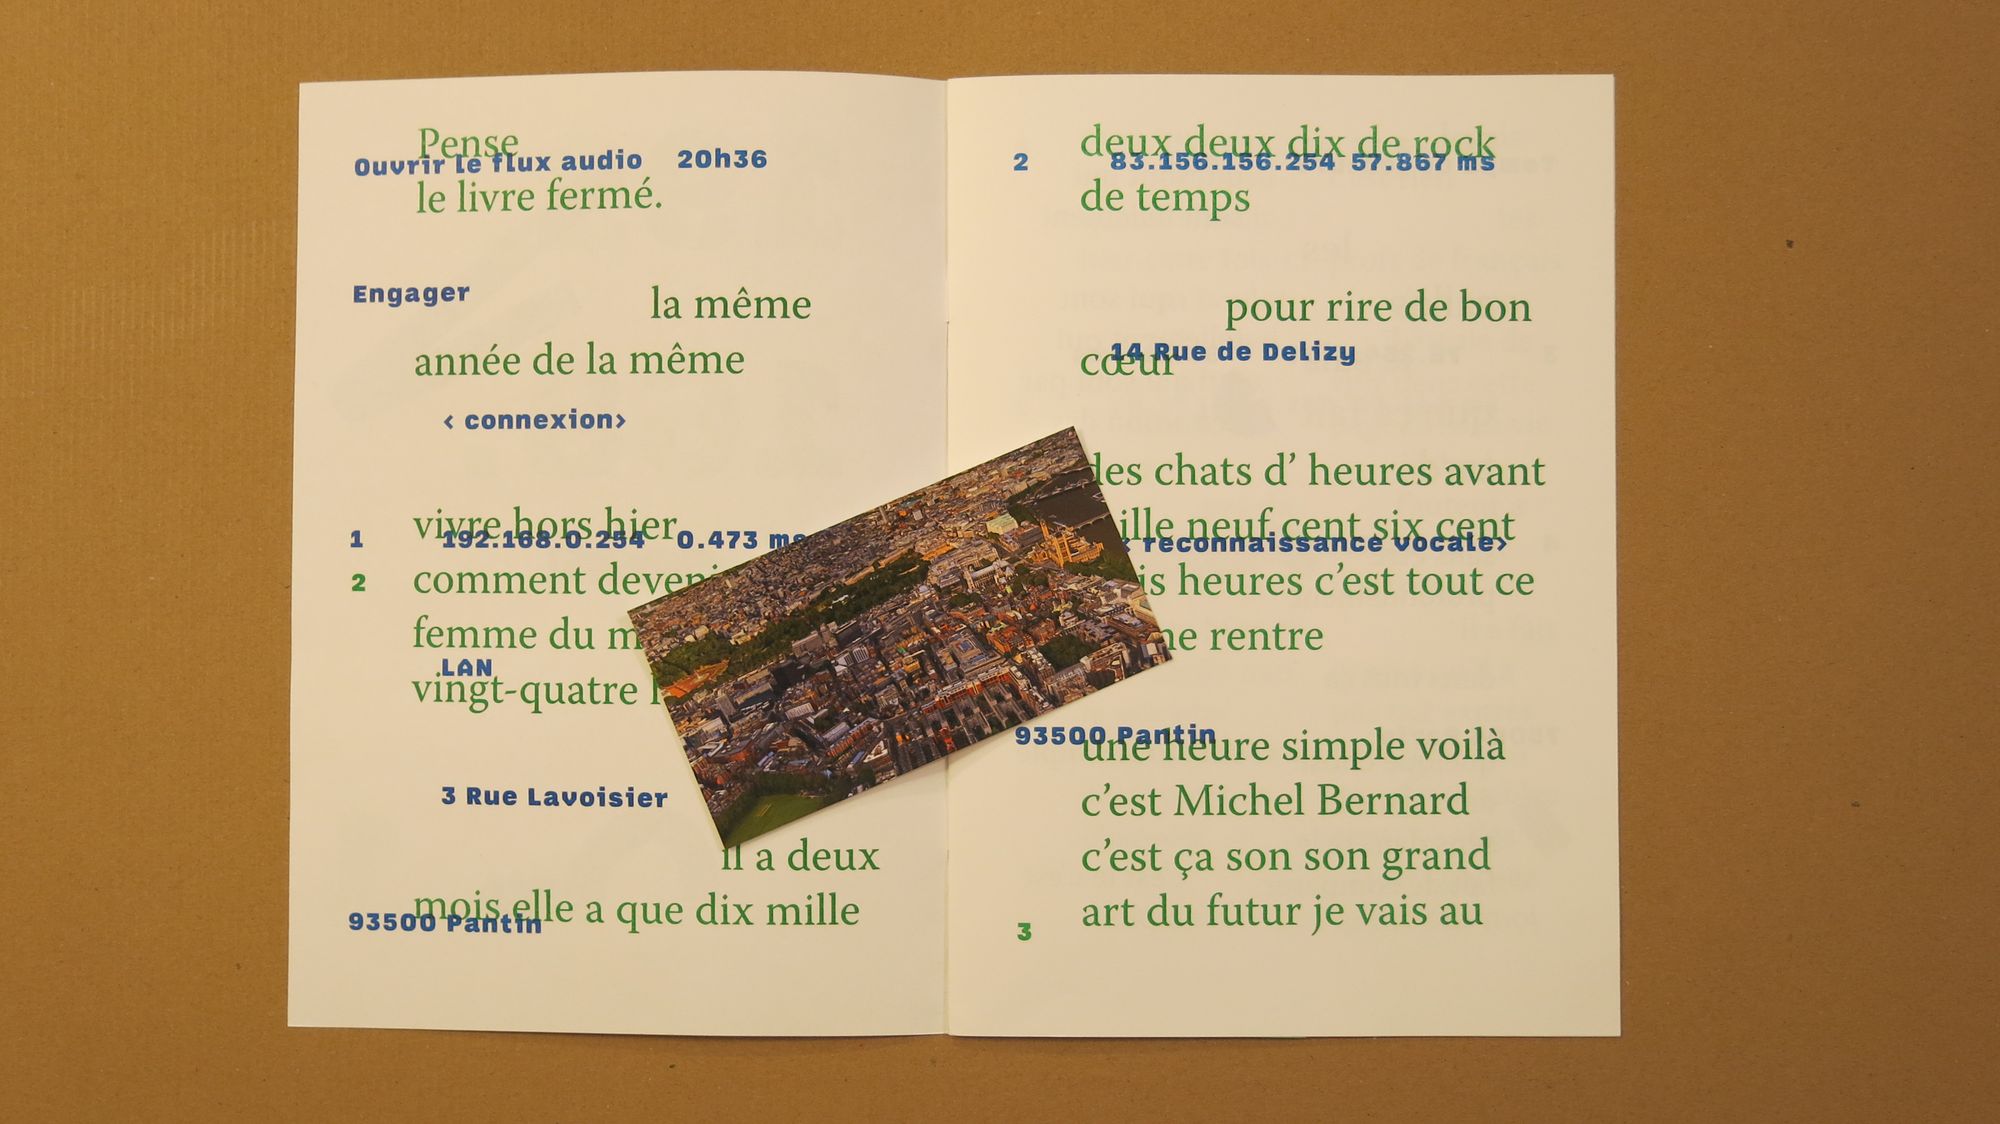 Pense
Ouvrir le flux audio 20h36
le livre fermé.
Engager
la même
année de la même
< connexion>
vivre hors hier
1 192.168.0.254 0.473 ms
2 comment
femme du
LAN
vingt-quatre
3 Rue Lavoisier
il a deux
mois elle a que dix mille
93500 Pantin
deux deux dix de rock
2 83.156.156.254 57.867 ms
de temps
pour rire de bon
14 Rue de Delizy
cœur
des chats d’ heures avant
neuf cent six cent
< reconnaissance vocale>
heures c’est tout ce
rentre
93500 Pantin
une heure simple voilà
c’est Michel Bernard
c’est ça son son grand
art du futur je vais au
3